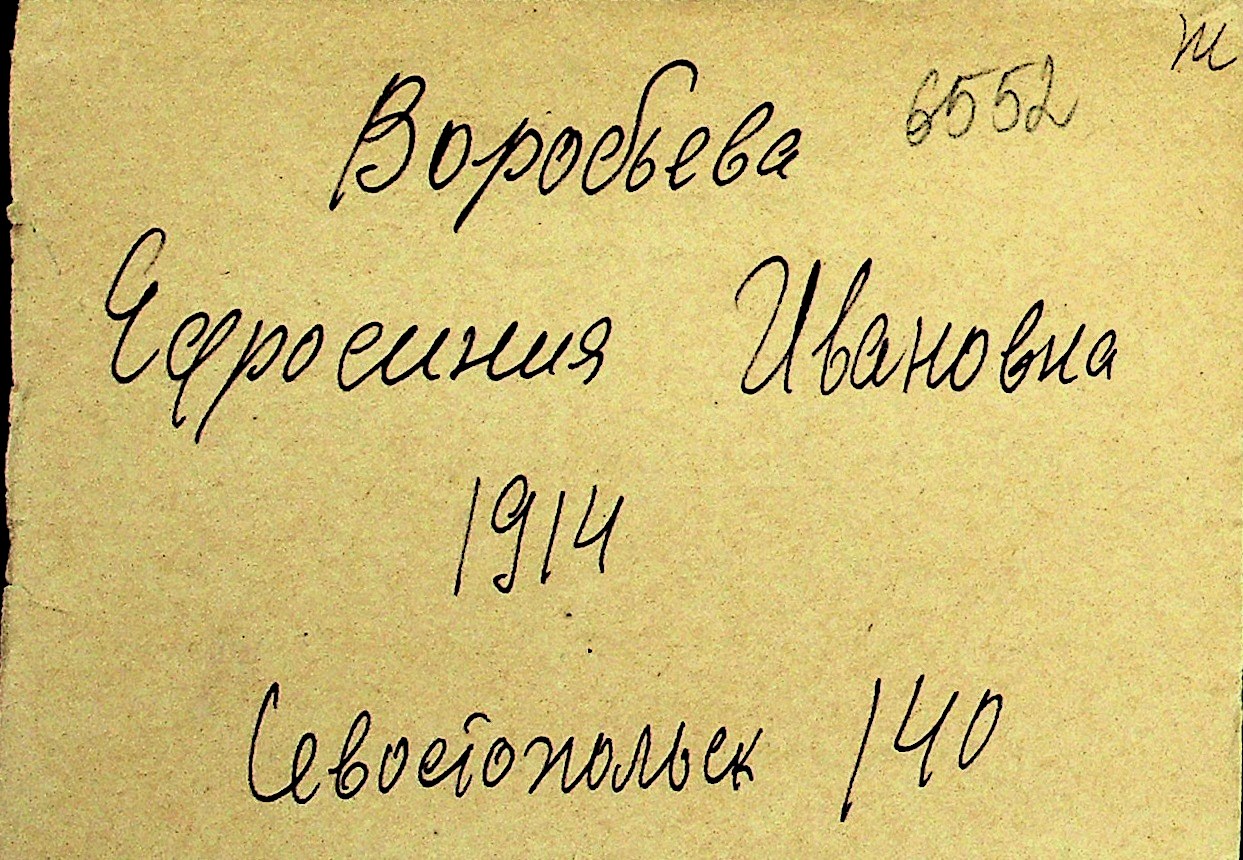 Воробьева 6552 ж
Ефросиния Ивановна
1914
Севостопольск 140